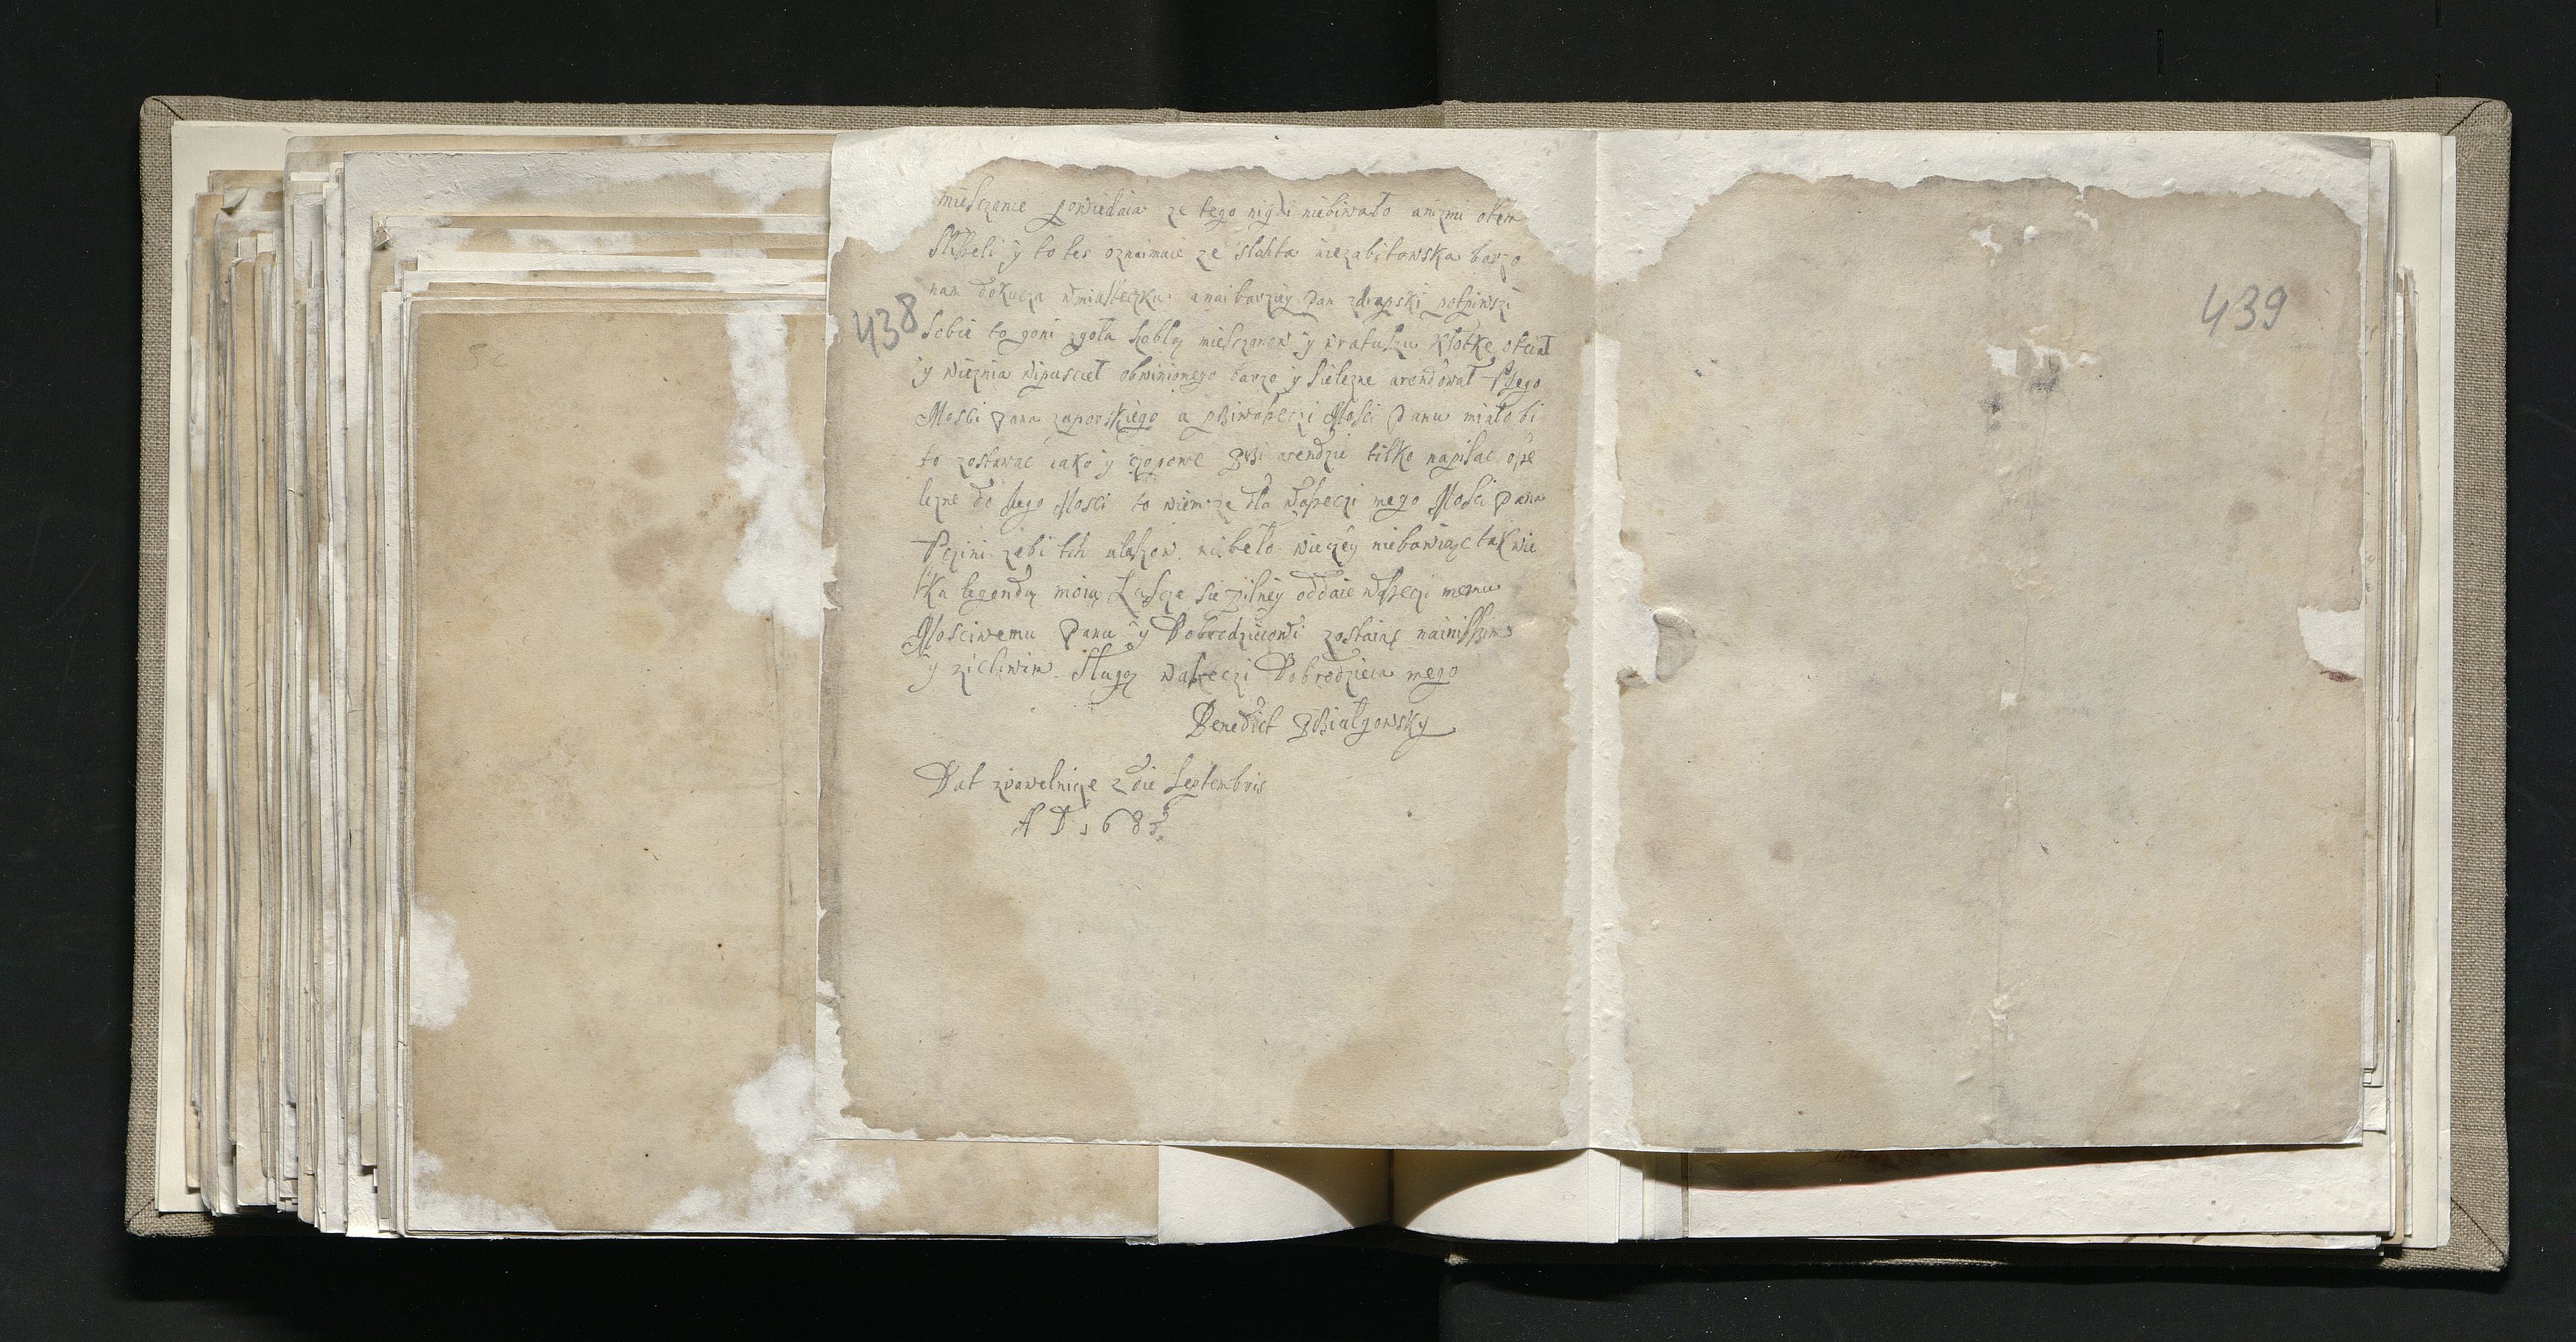 mieſczanie powiedaia ze tego nigdi niebiwało anizmi otem
ſliſzeli y to tes oznaimuie ze slahta niezabitowska barzo
nam dokucza wmiaſteczku anaibarziey Pan zdrapski potpiwszi
ſobie to goni zgoła ſzablą mieſczanow y wratuſzu Klotke otciął
y wieznia wipuscieł obwinionego barzo y ſielezne arendował
Mosci Pana zaporskiego a Mosci Panu miało bi
to zostawac iako y czopowe arendzie tilko napiſac ope
lezne do Jego Mosci to wiem ze dla waſzeczi mego Mosci Pana
Vczini zebi tch ałaſzow nibeło wieczey niebawiąc tak wie
lką legendą moią Łaſcze ſie pilney oddaie waſzeczi memu
Mosciwemu Panu y Dobrodzieiowi zostaiąc nainiſzim
y zicliwim ſługą waſzeczi Dobrodzieia mego
Benedict
438
439
Dat zpawelnicze 2 die Septembris
A D 168